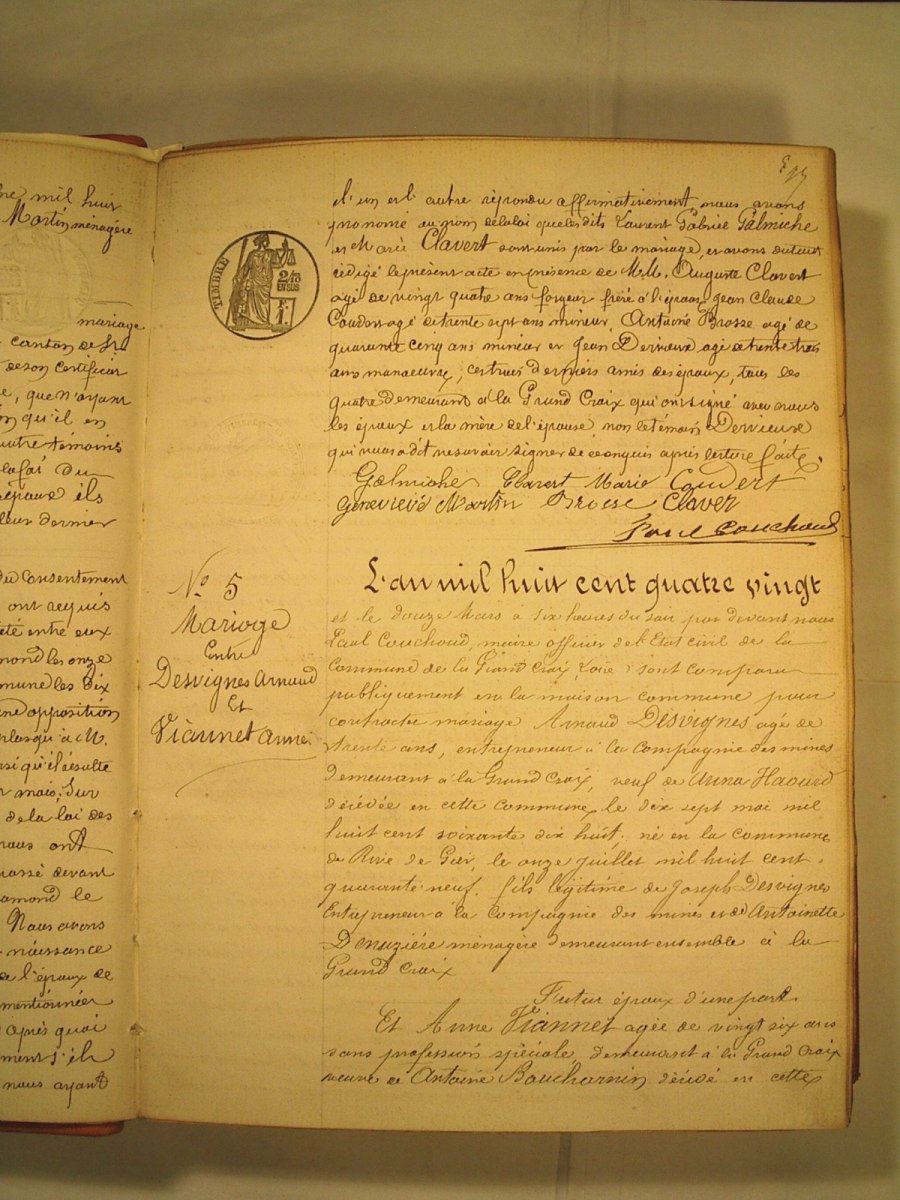 ne mil huit
Martin ménagère
mariage
canton de St
de son certificat
que n'ayant
qu'il en
quatre témoins
la foi du
époux ils
leur dernier
du Consentement
ont requis
été entre eux
mond les onze
mune les dix
une opposition
plus qu'à M.
nsi qu'il résulte
mois, Sur
de la loi des
nous ont
passé devant
amond le
Nous avons
naissance
de l'époux de
mentionnée
après quoi
ment s'ils
nous ayant
TIMBRE
2/10
EN SUS
l'un et l'autre répondu affirmativement nous avons
prononcé au nom de la loi que les dits Laurent Gabriel Galmiche
et Marie Clavert sont unis par le mariage, et avons du tout
rédigé le présent acte en présence de M.M. Auguste Clavert
agé de vingt quatre ans forgeur frère à l'épouse, Jean Claude
Coudert agé de trente sept ans mineur, Antoine Brosse agé de
quarante cinq ans mineur et Jean Dervieux agé de trente trois
ans manoeuvre, ces trois derniers amis des époux, tous les
quatre demeurant à la Grand Croix qui ont signé avec nous
les époux et la mère de l'épouse, non le témoin Dervieux
qui nous a dit ne savoir signer de ce enquis après lecture faite.
Galmiche Clavert Marie Coudert
Geneviève Martin Brosse Claver
Paul Couchoud
N° 5
Mariage
Entre
Desvignes Arnaud
Et
Viannet Anne
L'an mil huit cent quatre vingt
et le douze Mars à six heures du soir par devant nous
Paul Couchoud, maire officier de l'Etat civil de la
Commune de la Grand Croix, Loire, sont comparu
publiquement en la maison commune pour
contracter mariage Arnaud Desvignes agé de
trente ans, entrepreneur à la Compagnie des mines
demeurant à la Grand Croix, veuf de Anna
décédée en cette commune, le dix sept mai mil
huit cent soixante dix huit, né en la commune
de Rive de Gier, le onze juillet mil huit cent
quarante neuf, fils légitime de Joseph Desvignes
Entrepreneur à la Compagnie des mines et de Antoinette
Denuzière ménagère demeurant ensemble à la
Grand Croix
Futur époux d'une part.
Et Anne Viannet agée de vingt six ans
sans profession spéciale, demeurant à la Grand Croix
veuve de Antoine Boucharnin décédé en cette